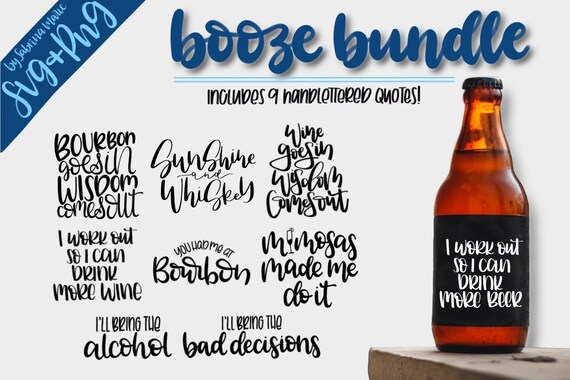 by Sabrina Marie
SVG+PNG
booze bundle
INCLUDES 9 HANDLETTERED QUOTES!
BOURBON
goes in
WISDOM
comes out
SunShine
and
WhiSkey
Wine
goes in
Wisdom
Comes out
I WORK OUT
SO I CAN
DRINK
MORE WINE
YOU HAD ME AT
Bourbon
MIMOSAS
made me
do it
I'LL BRING THE
alcohol
I'LL BRING THE
bad decisions
I WORK OUT
SO I CAN
DRINK
MORE BEER